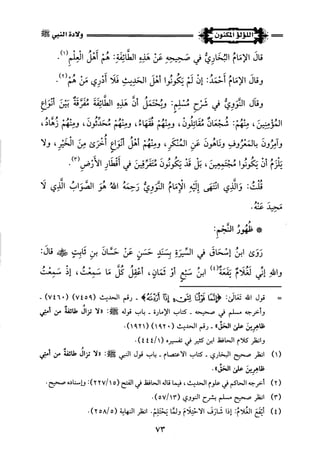 اللؤلؤ المكنون
ولادة النبي ﷺ
قالَ الإمَامُ البُخَارِيُّ في صَحِيحِهِ عَنْ هَذِهِ الطَّائِفَةِ: هُمْ أَهْلُ العِلْمِ(١).
وقالَ الإمَامُ أَحْمَدُ: إنْ لَمْ يَكُونُوا أَهْلَ الحَدِيثِ فَلَا أَدْرِي مَنْ هُمْ(٢).
وقالَ النَّوَوِيُّ في شَرْحِ مُسْلِمٍ: ويُحْتَمَلُ أنَّ هَذِهِ الطَّائِفَةَ مُفَرَّقَةٌ بَيْنَ أنْوَاعِ
المُؤْمِنِينَ، مِنْهُمْ: شُجْعَانٌ مُقَاتِلُونَ، ومِنْهُمْ فُقَهَاءُ، ومِنْهُمْ مُحَدِّثُونَ، ومِنْهُمْ زُهَّادٌ،
وآمِرُونَ بالمَعْرُوفِ ونَاهُونَ عَنِ المُنْكَرِ، ومِنْهُمْ أهْلُ أنْوَاعٍ أُخْرَى مِنَ الخَيْرِ، ولا
يَلْزَمُ أنْ يَكُونُوا مُجْتَمِعِينَ، بَلْ قَدْ يَكُونُونَ مُتَفَرِّقِينَ في أقْطَارِ الأرْضِ(٣).
قُلْتُ: وَالَّذِي انْتَهَى إلَيْهِ الإمَامُ النَّوَوِيُّ رَحِمَهُ اللهُ هُوَ الصَّوَابُ الَّذِي لَا
مَحِيدَ عَنْهُ.
* ظُهُورُ النَّجْمِ:
رَوَى ابنُ إسْحَاقَ في السِّيرَةِ بِسَنَدٍ حَسَنٍ عَنْ حَسَّانَ بنِ ثَابِتٍ ﵁ قالَ:
واللهِ إنِّي لَغُلَامٌ يَفَعَةٌ(٤) ابنُ سَبْعِ أوْ ثَمَانٍ، أعْقِلُ كُلَّ مَا سَمِعْتُ، إذْ سَمِعْتُ
= قول الله تعالى: ﴿إِنَّمَا قَوْلُنَا لِشَىْءٍ إِذَا أَرَدْنَٰهُ﴾ ـ رقم الحديث (٧٤٥٩) (٧٤٦٠) ـ
وأخرجه مسلم في صحيحه ـ كتاب الإمارة ـ باب قوله ﷺ: «لا تزالُ طائفةٌ من أمتي
ظاهِرينَ على الحَقِّ» ـ رقم الحديث (١٩٢٠) (١٩٢١).
وانظر كلام الحافظ ابن كثير في تفسيره (٤٤٤/١).
(١) انظر صحيح البخاري ـ كتاب الاعتصام ـ باب قول النبي ﷺ: «لا تزالُ طائفةٌ من أمتي
ظاهِرِينَ على الحَقِّ».
(٢) أخرجه الحاكم في علوم الحديث، فيما قاله الحافظ في الفتح (٢٢٧/١٥) وإسناده صحيح.
(٣) انظر صحيح مسلم بشرح النووي (٥٧/١٣).
(٤) أيْفَعَ الغُلامُ: إذا شَارَفَ الاحْتِلامَ ولَمَّا يَحْتَلِمْ. انظر النهاية (٢٥٨/٥).
٧٣